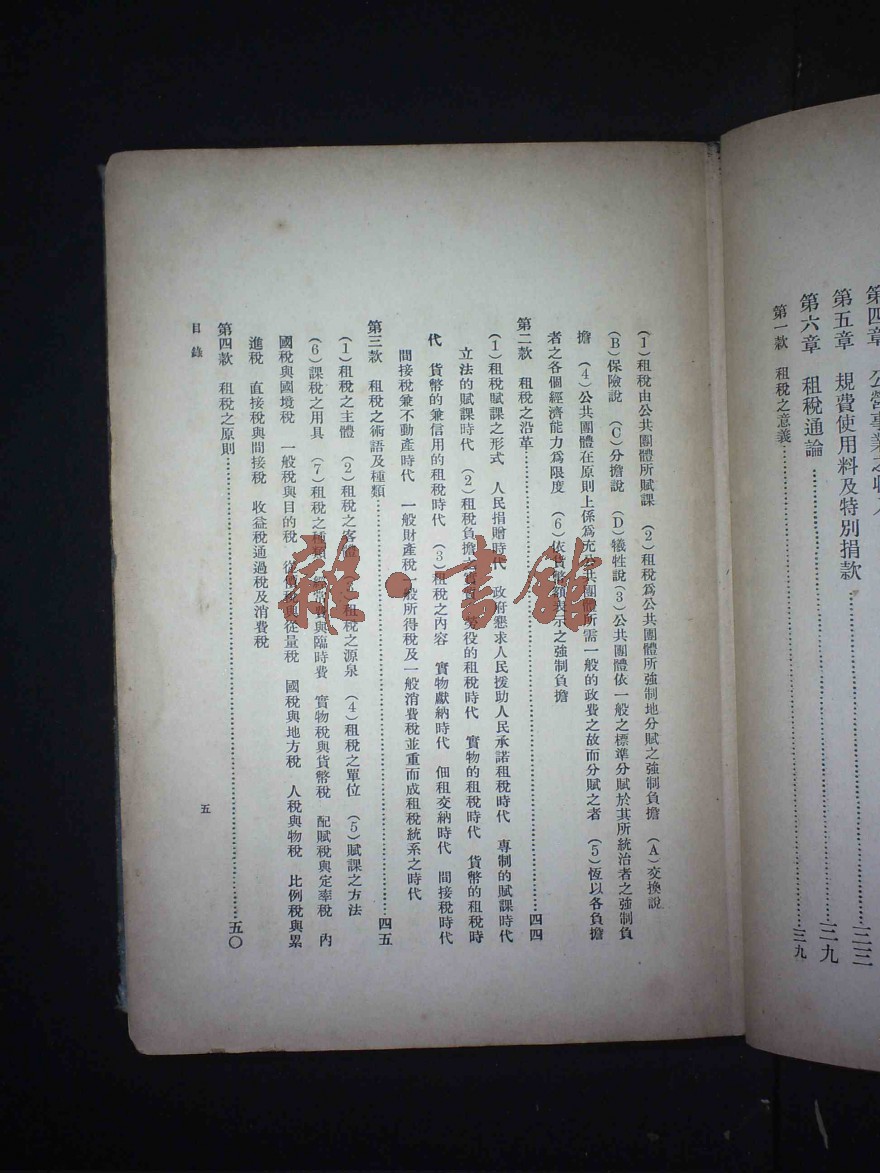 第五章 規費使用料及特別捐款……三三
第六章 租稅通論……三九
第一款 租稅之意義……三九
(1)租稅由公共團體所賦課 (2)租稅爲公共團體所強制地分賦之強制負擔 (A)交換說
(B)保險說 (C)分擔說 (D)犧牲說(3)公共團體依一般之標準分賦於其所統治者之強制負
擔 (4)公共團體在原則上係爲充公共團體所需一般的政費之故而分賦之者 (5)恆以各負擔
者之各個經濟能力爲限度 (6)依貨幣額表示之強制負擔
第二款 租稅之沿革……四四
(1)租稅賦課之形式 人民捐贈時代 政府懇求人民援助人民承諾租稅時代 專制的賦課時代
立法的賦課時代 (2)租稅負擔之 勞役的租稅時代 實物的租稅時代 貨幣的租稅時
代 貨幣的兼信用的租稅時代 (3)租稅之內容 實物獻納時代 佃租交納時代 間接稅時代
間接稅兼不動產時代 一般財產稅一般所得稅及一般消費稅並重而成租稅統系之時代
第三款 租稅之術語及種類……四五
(1)租稅之主體 (2)租稅之客體 租稅之源泉 (4)租稅之單位 (5)賦課之方法
(6)課稅之用具 (7)租稅之種類 經常費與臨時費 實物稅與貨幣稅 配賦稅與定率稅 內
國稅與國境稅 一般稅與目的稅 從價稅與從量稅 國稅與地方稅 人稅與物稅 比例稅與累
進稅 直接稅與間接稅 收益稅通過稅及消費稅
第四款 租稅之原則……五〇
目錄
五
雜·書館